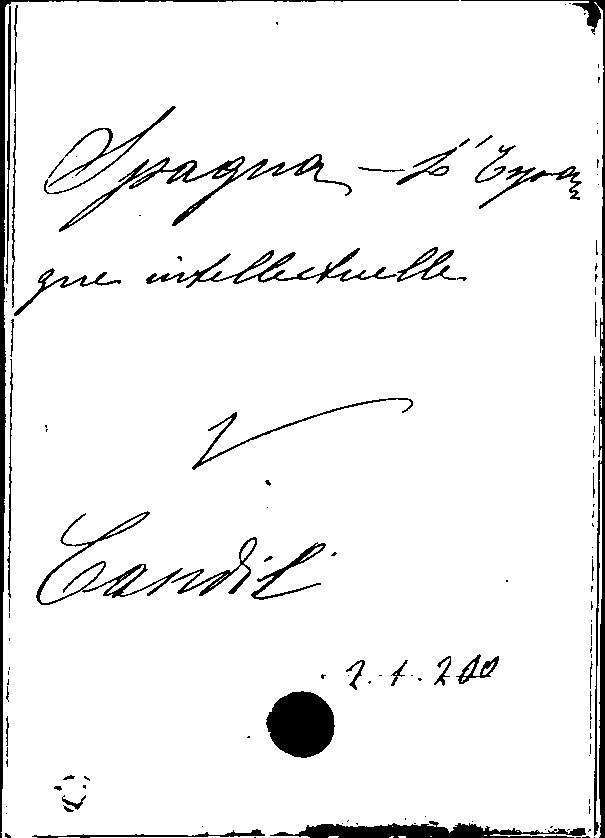 Spagna - L'Espa
gne intellectuelle
V
Candil
2.1.200